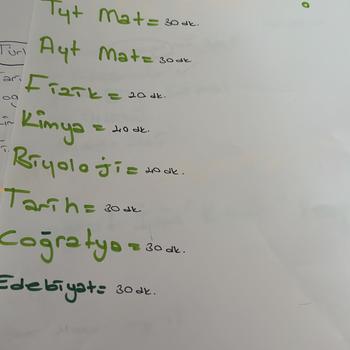 Tyt Mat= 30 dk.
Ayt Mat= 30 dk.
Fizik = 20 dk.
Kimya = 20 dk.
Biyoloji= 20 dk.
Tarih= 30 dk.
Coğrafya = 30 dk.
Edebiyat= 30 dk.